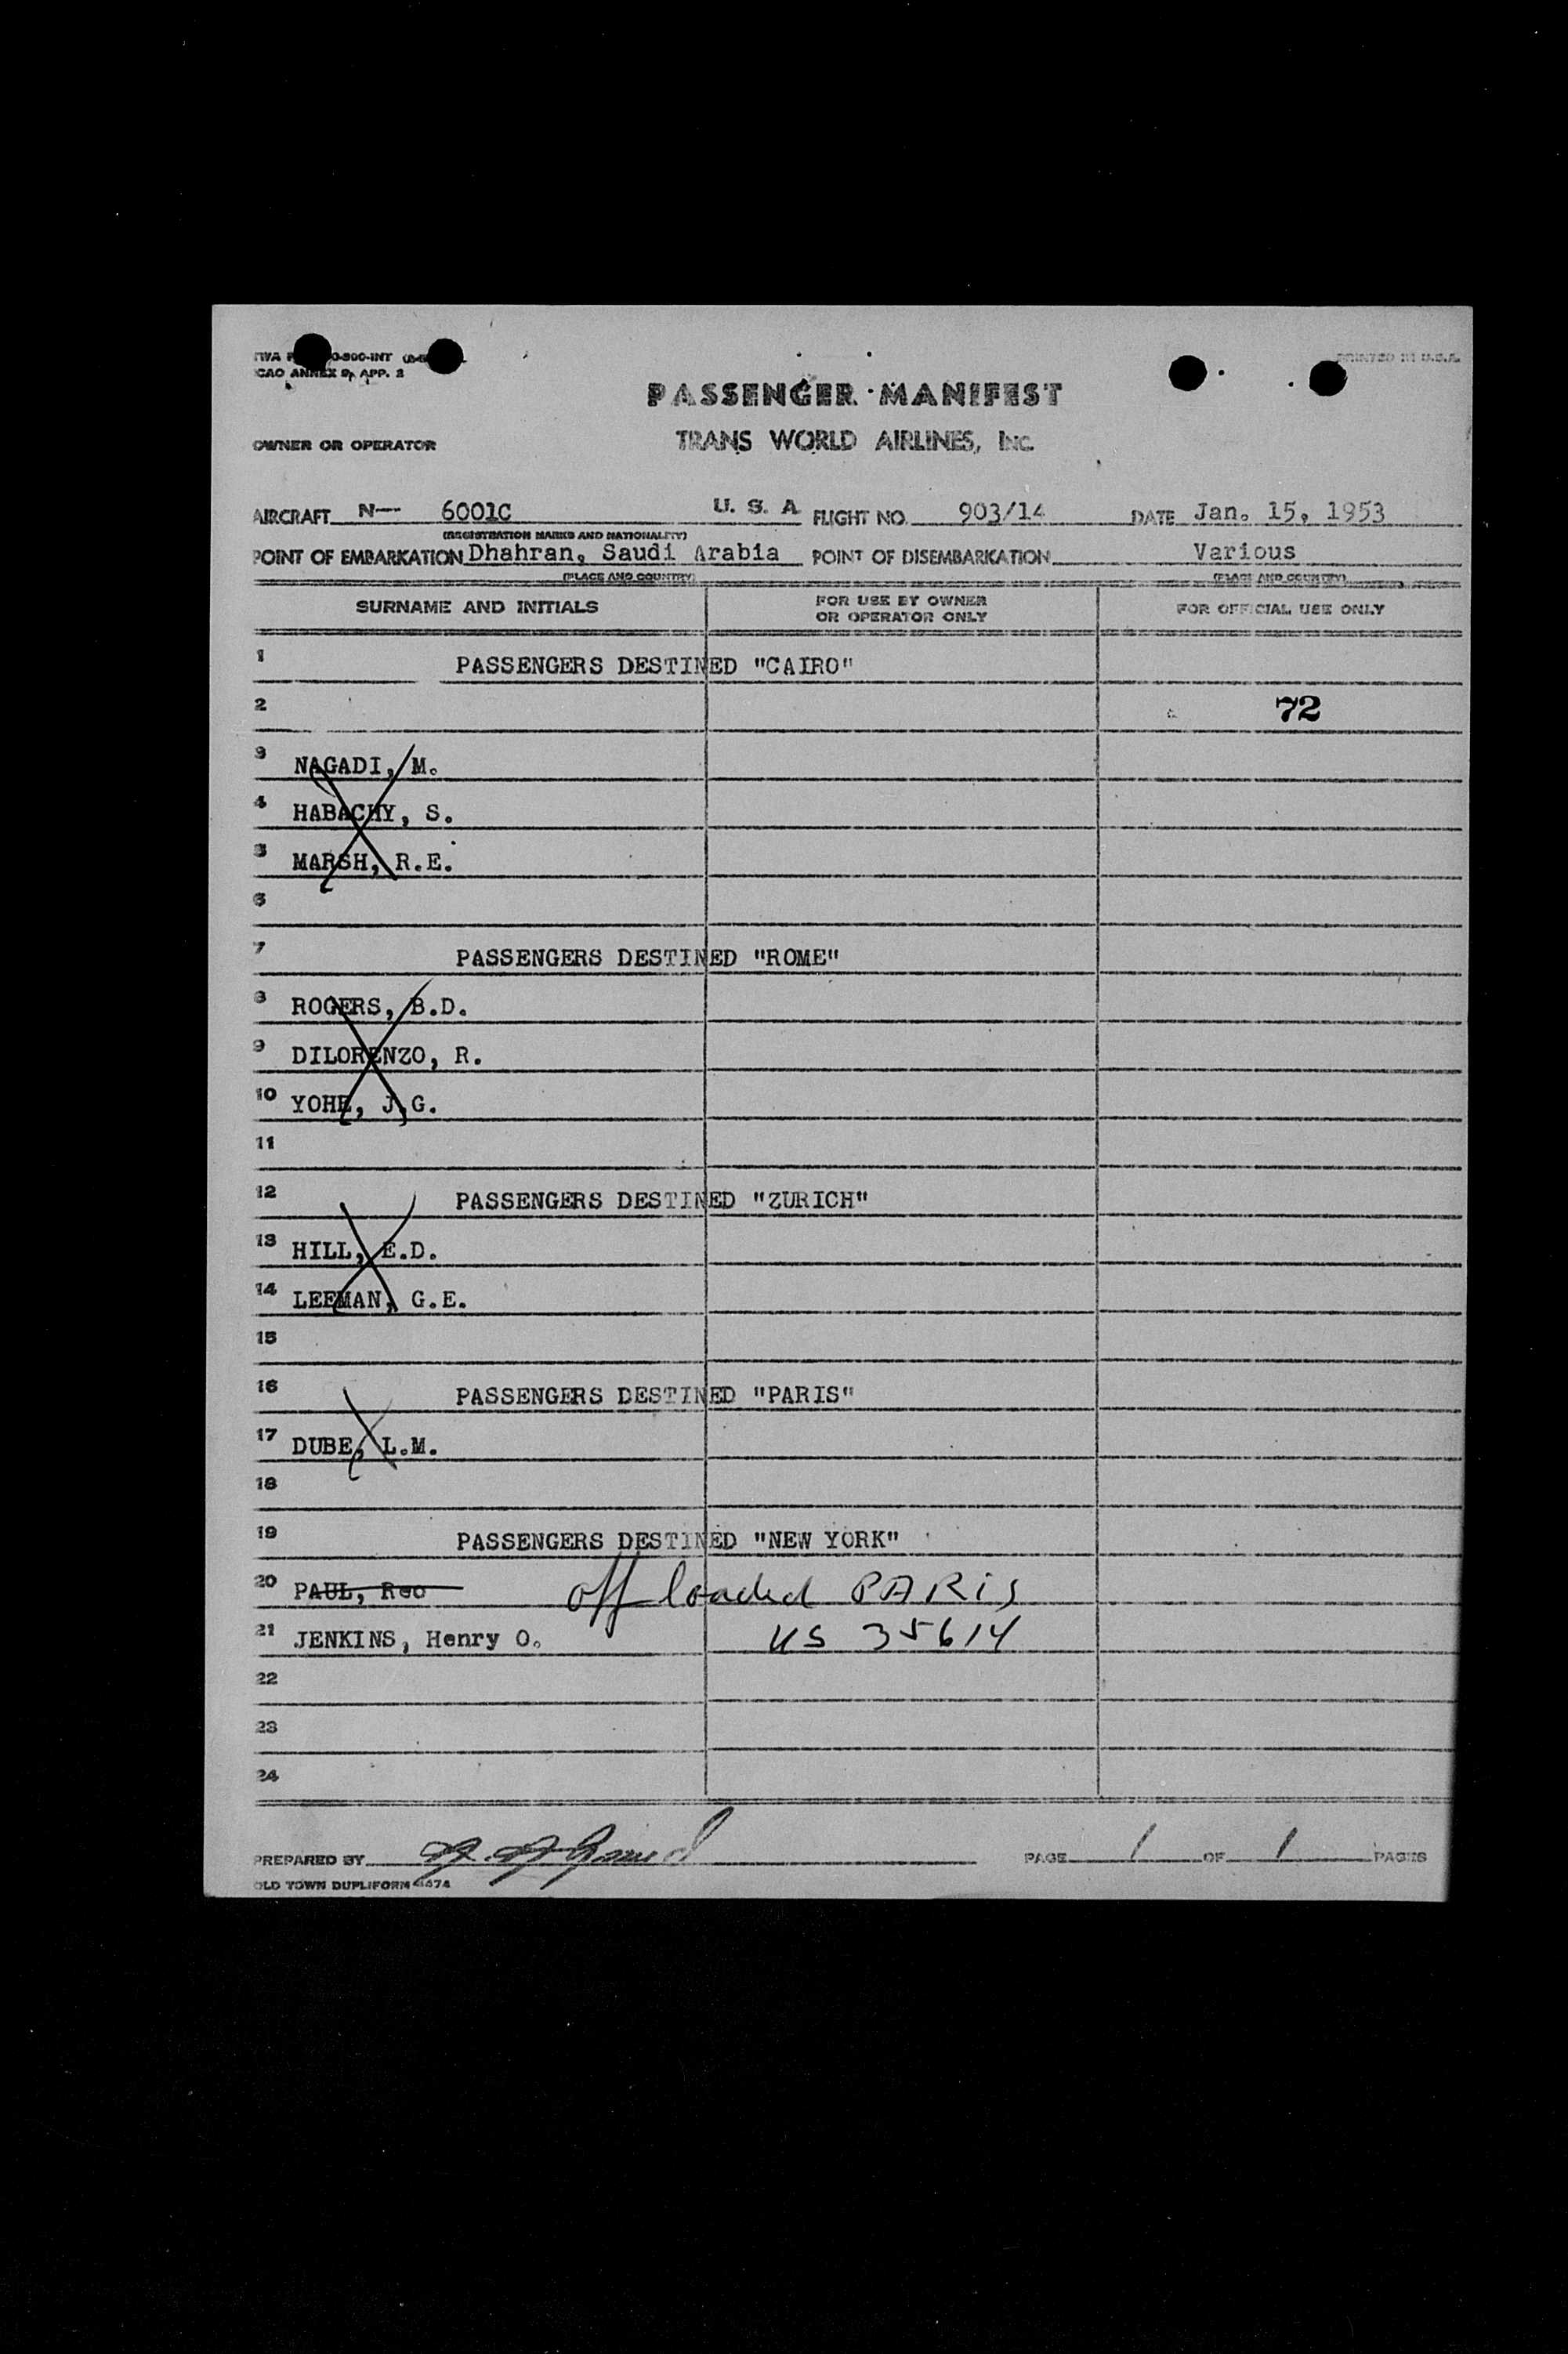 CAO ANNEX 9, APP. 2
PRINTED IN U.S.A.
PASSENGER MANIFEST
OWNER OR OPERATOR
TRANS WORLD AIRLINES, Inc.
AIRCRAFT N— 6001C U. S. A FLIGHT NO. 903/14 DATE Jan. 15, 1953
(REGISTRATION MARKS AND NATIONALITY)
POINT OF EMBARKATION Dhahran, Saudi Arabia POINT OF DISEMBARKATION Various
(PLACE AND COUNTRY) (PLACE AND COUNTRY)
SURNAME AND INITIALS FOR USE BY OWNER OR OPERATOR ONLY FOR OFFICIAL USE ONLY
1 PASSENGERS DESTINED "CAIRO"
2 72
3 NAGADI, M.
4 HABACHY, S.
5 MARSH, R.E.
6
7 PASSENGERS DESTINED "ROME"
8 ROGERS, B.D.
9 DILORENZO, R.
10 YOHE, J.G.
11
12 PASSENGERS DESTINED "ZURICH"
13 HILL, E.D.
14 LEEMAN, G.E.
15
16 PASSENGERS DESTINED "PARIS"
17 DUBE, L.M.
18
19 PASSENGERS DESTINED "NEW YORK"
20 PAUL, Reo off loaded PARIS
21 JENKINS, Henry O. US 35614
22
23
24
PREPARED BY PAGE 1 OF 1 PAGES
OLD TOWN DUPLIFORM 4474